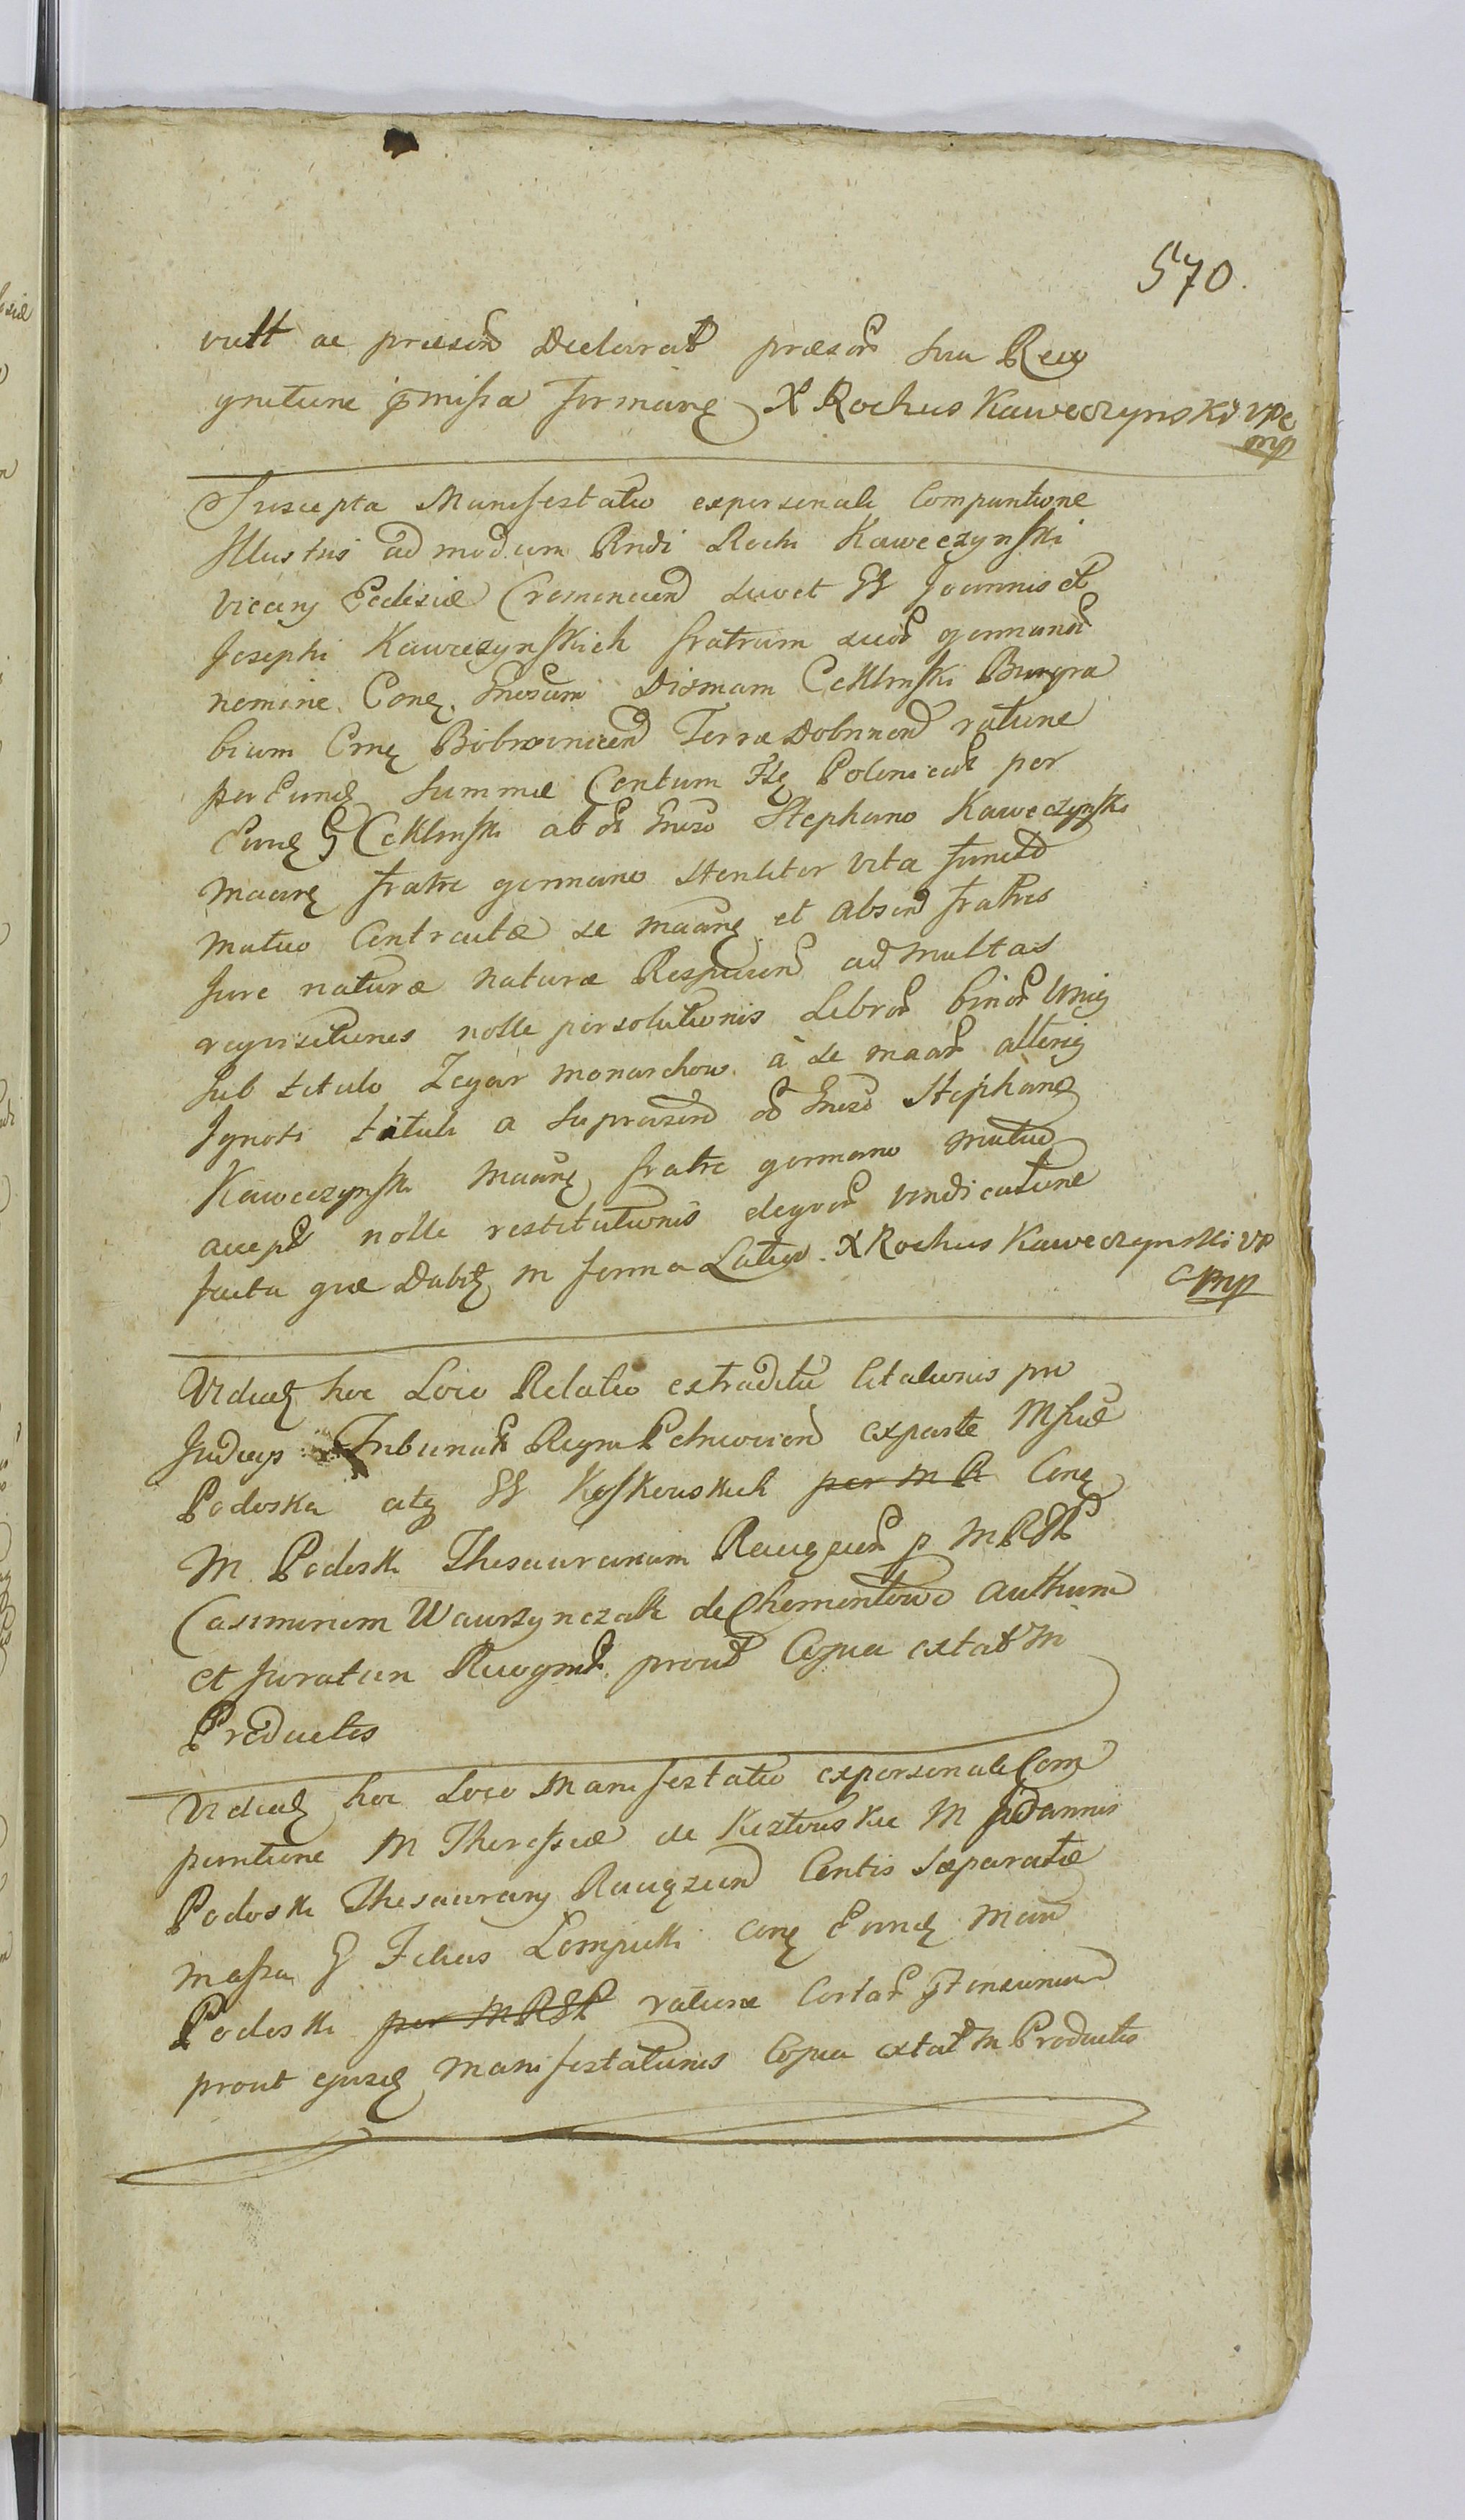 570.
vult ac præsen Declarat præsen sua Reco
gnitione præmissa formane X Rochus Kaweczynski VPC
mp
Suscepta Manifestatio ex personali Comparitione
Illustris admodum Rndi Rochi Kaweczynski
Vicarij Ecclesiæ Cremencien suo et GG Joannis et
Josephi Kaweczynskich fratrum suor germanor
nomine Conq Gnosum Dismam Ceklinski Burgra
bium Crnę Bobrovnicen Terræ Dobrinen ratione
per Eundę Summæ Centum Flę Polonical per
Eundę G Ceklinski ab olim Gnoso Stephano Kaweczynski
maanę fratre germano steriliter vita functo
mutuo Contractæ se maanę et absen fratres
Jure naturæ naturæ Respicien ad multas
requisitiones nolle persolutionis Libror binor Unię
sub titulo Zegar monarchow à se maan alterię
Ignoti tituli a suprascrip olim Gnoso Stephano
Kaweczynski maanę fratre germano mutuo
accept nolle restitutionis eleqor vindicatione
facta quæ Dabitę in forma Latiori X Rochus Kaweczynski VP
C mp
Videatę hoc Loco Relatio extraditæ Citationis pro
Judicijs Tribunalis Regni Petricovien ex parte Mfcæ
Podoska atę GG Koskowskich per M R Conę
M Podoski Thesaurarium Raciązen p MRGR
Casimirum Wawrzynczak de Chomentowo authum
et Juratum Recognit prout Copia extat in
Productis
Videatę hoc Loco Manifestatio ex personali Com
paritione M Theressiæ de Kretowskie M Joannis
Podoski Thesaurarij Raciązen Contis separatæ
massa G Felicis Lempicki conę Eundę Mcum
Podoski per MRGR ratione Certar prætensionum
prout ejusdę Manifestationis Copia extat in Productis